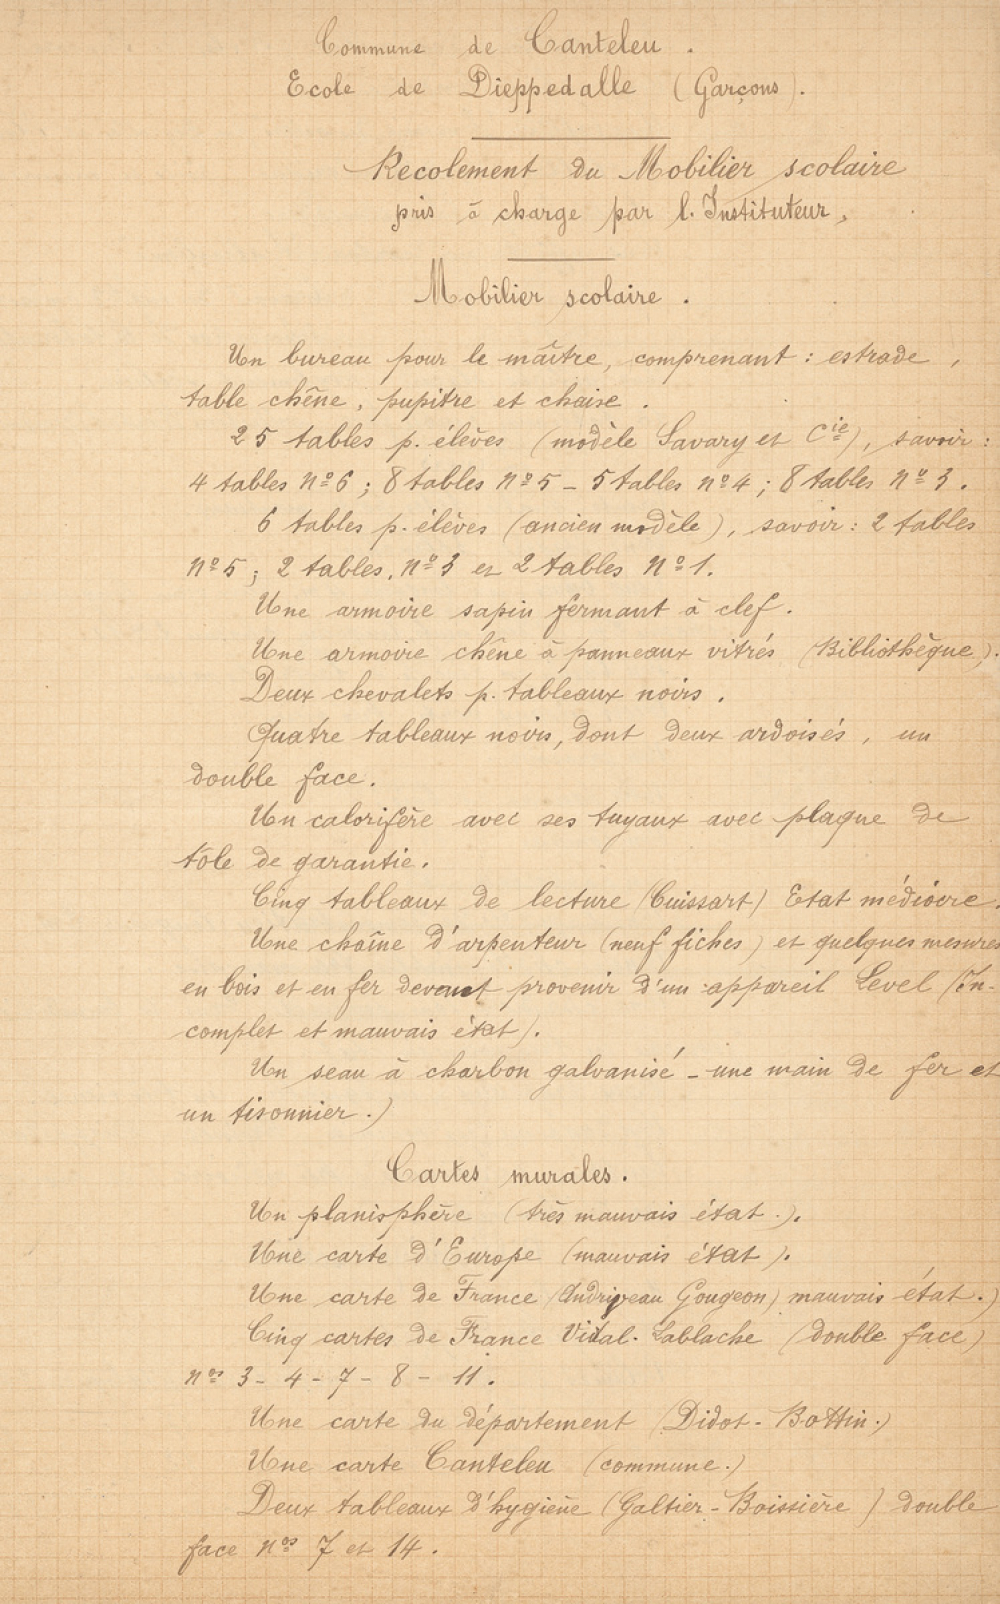 Commune de Canteleu.
Ecole de Dieppedalle (Garçons).
Recolement du Mobilier scolaire
pris à charge par l'Instituteur,
Mobilier scolaire.
Un bureau pour le maître, comprenant : estrade,
table chêne, pupitre et chaise.
25 tables p. élèves (modèle Savary et Cie), savoir :
4 tables nº 6 ; 8 tables nº 5 _ 5 tables nº 4 ; 8 tables nº 3.
6 tables p. élèves (ancien modèle), savoir : 2 tables
nº 5 ; 2 tables. nº 3 et 2 tables nº 1.
Une armoire sapin fermant à clef.
Une armoire chêne à panneaux vitrés (Bibliothèque).
Deux chevalets p. tableaux noirs.
Quatre tableaux noirs, dont deux ardoisés, un
double face.
Un calorifère avec ses tuyaux avec plaque de
tôle de garantie.
Cinq tableaux de lecture (Cuissart) Etat médiocre.
Une chaîne d'arpenteur (neuf fiches) et quelques mesures
en bois et en fer devant provenir d'un appareil Level (In-
complet et mauvais état).
Un seau à charbon galvanisé _ une main de fer et
un tisonnier.)
Cartes murales.
Un planisphère (très mauvais état.).
Une carte d'Europe (mauvais état).
Une carte de France (Andriveau Gougeon) mauvais état.)
Cinq cartes de France Vidal-Lablache (double face)
nos 3 - 4 - 7 - 8 - 11.
Une carte du département (Didot-Bottin.)
Une carte Canteleu (commune.)
Deux tableaux d'hygiène (Galtier-Boissière) double
face nos 7 et 14.